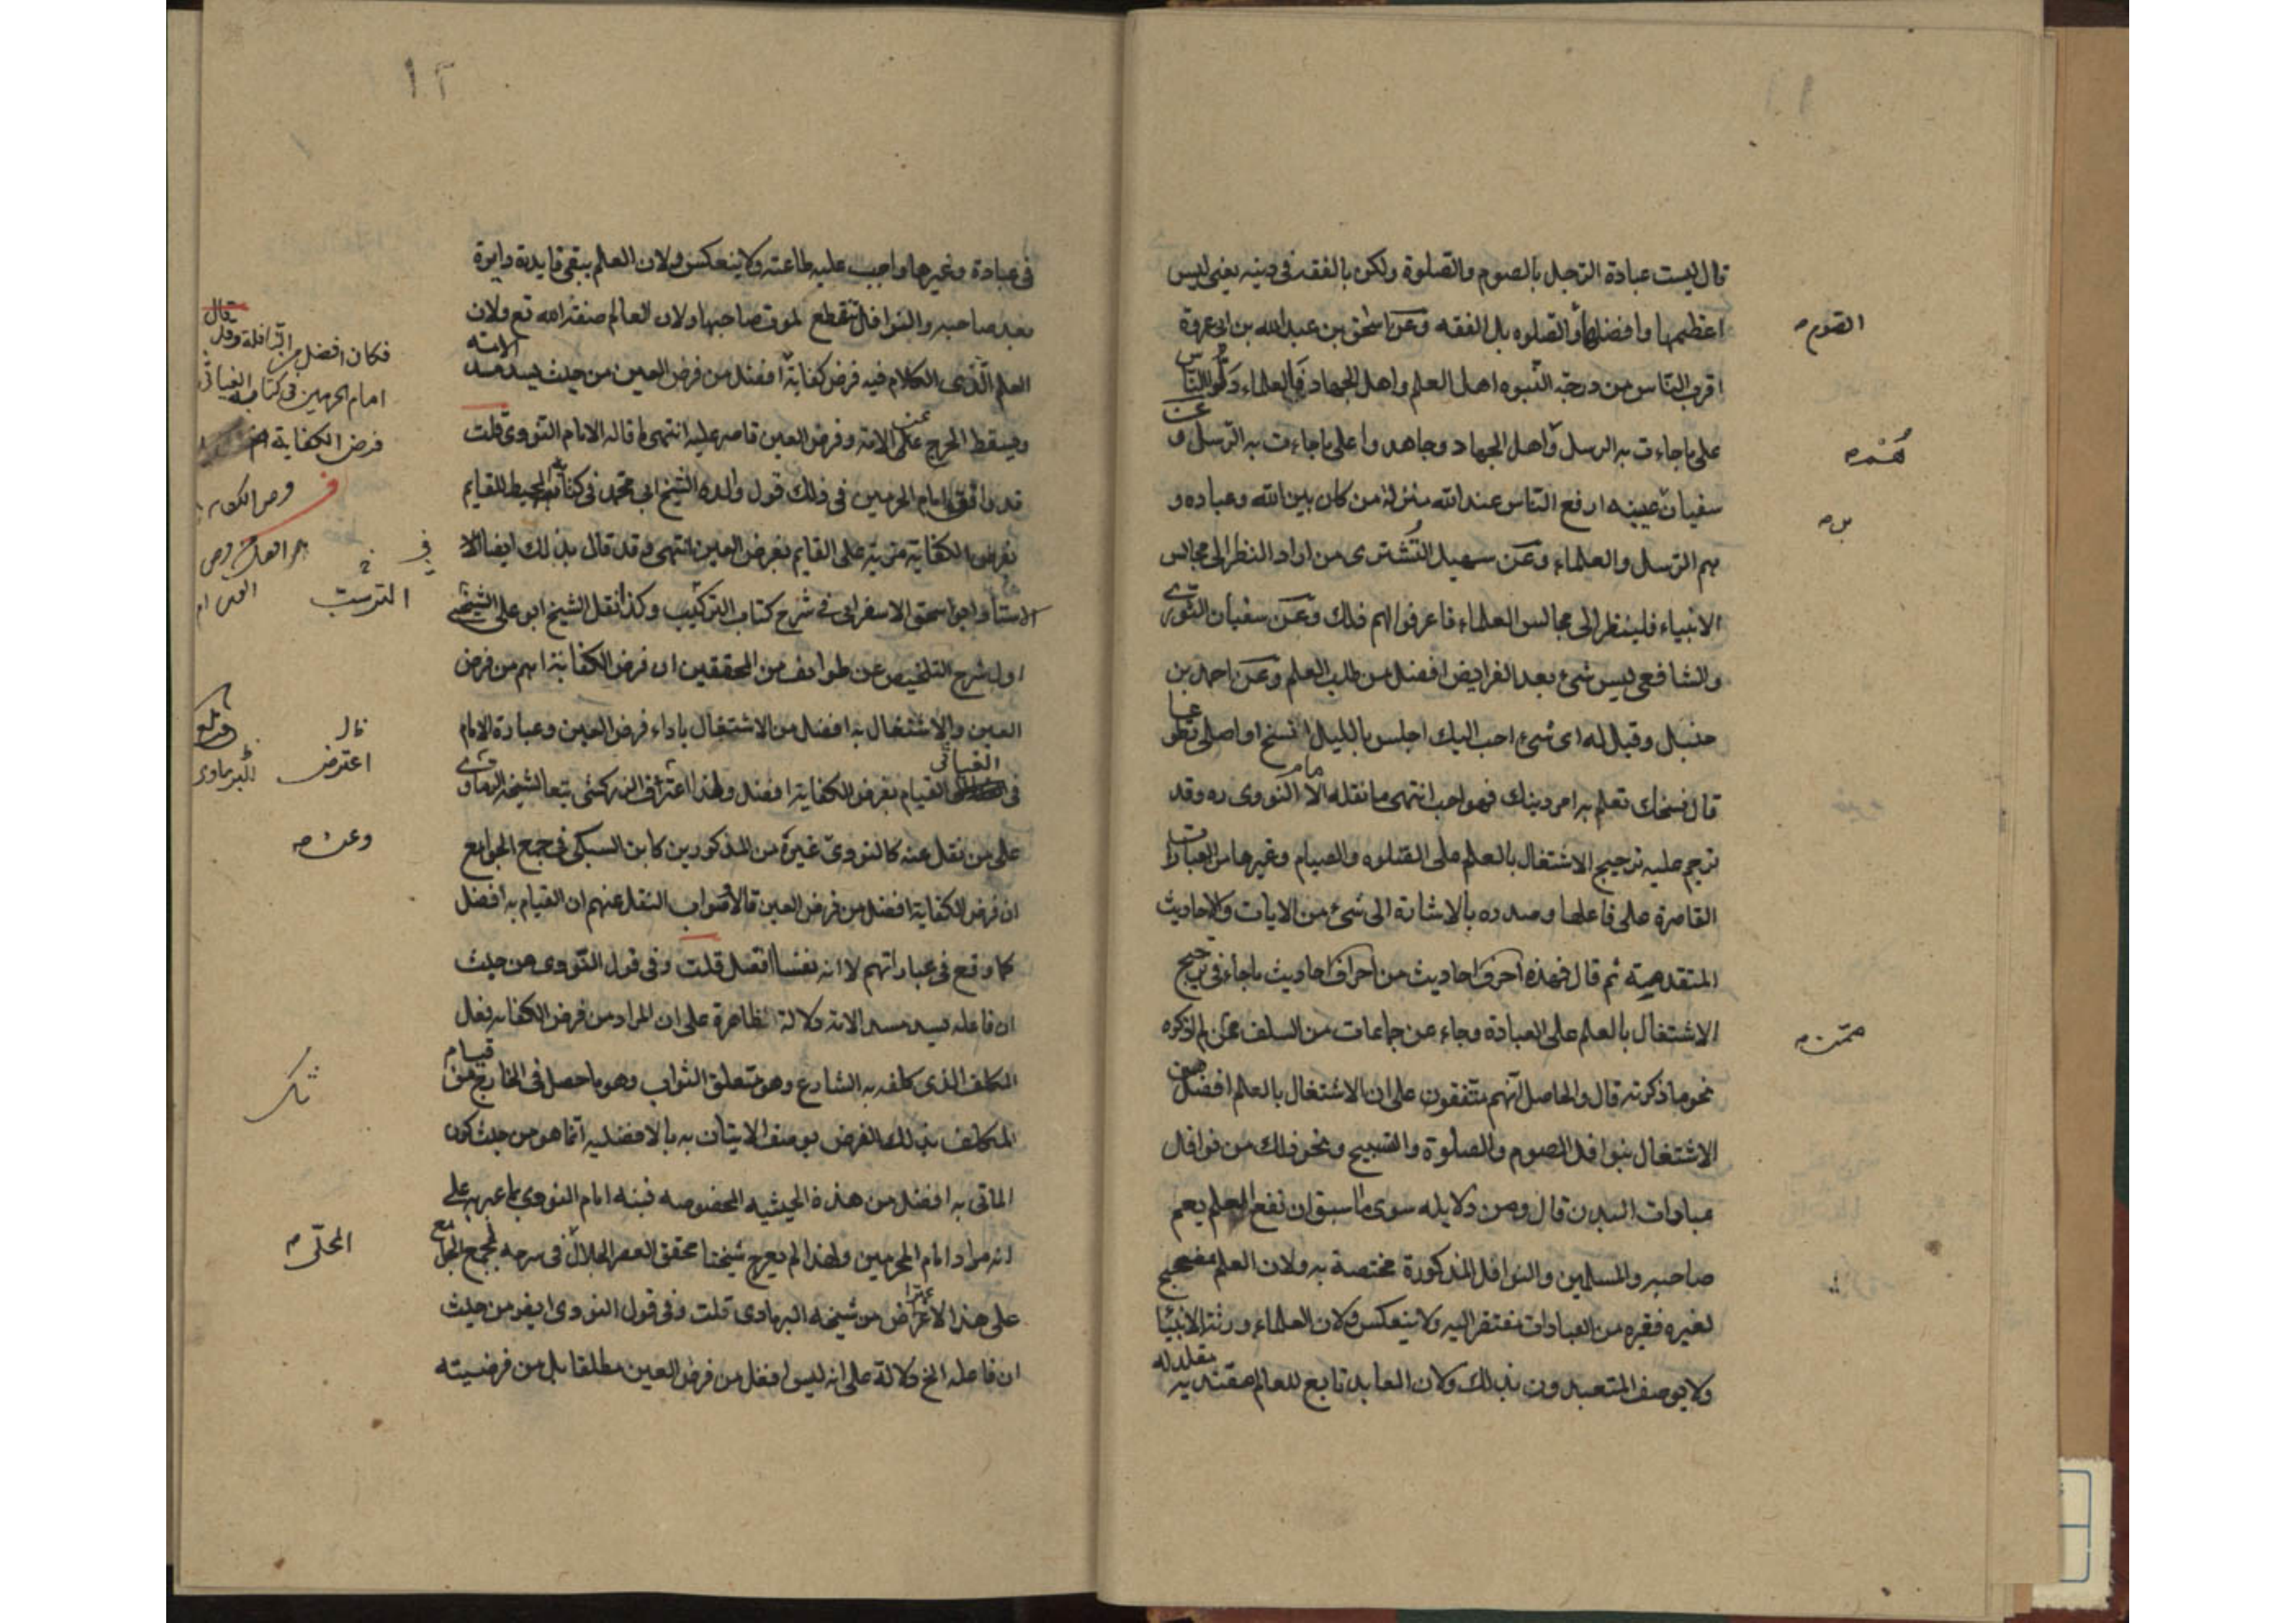 قال ليست عبادة الرجل بالصوم والصلوة ولكن بالفقه في دينه يعني ليس
اعظمها وافضلها والصلوه بل الفقه وعن اسحق بن عبد الله بن ابي عروة
الصوم
اقرب الناس من درجة النبوه اهل العلم واهل الجهاد فالعلماء دلوا الناس
على ما جاءت به الرسل واهل الجهاد وجاهدوا على ما جاءت به الرسل و
سفيان عيينه ارفع الناس عند الله منزلة من كان بين الله وعباده و
هم الرسل والعلماء وعن سهيل التشترى من اراد النظر الى مجالس
الانبياء فلينظر الى مجالس العلماء فاعرفوا لهم ذلك وعن سفيان الثورى
والشافعي ليس شئ بعد الفرايض افضل من طلب العلم وعن احمد بن
حنبل وقيل له اى شئ احب اليك اجلس بالليل انسخ او اصلى تطوعا
قال نسخك تعلم به امر دينك فهو احب انتهى ما نقله الامام النووى ره وقد
ترجم عليه ترجيح الاشتغال بالعلم على الصلوه والصيام وغيرها من العبادات
القاصرة على فاعلها وصدره بالاشارة الى شئ من الايات والاحاديث
المتقدمة ثم قال فهذه احرف احاديث من اطراف احاديث ما جاء في ترجيح
الاشتغال بالعلم على العبادة وجاء عن جماعات من السلف ممن لم اذكره
ممن
نحو ما ذكرته قال والحاصل انهم متفقون على ان الاشتغال بالعلم افضل من
الاشتغال بنوافل الصوم والصلوة والتسبيح ونحو ذلك من نوافل
عبادات البدن قال ومن دلايله سوى ما سبق ان نفع العلم يعم
صاحبه والمسلمين والنوافل المذكورة مختصة به ولان العلم مصحح
لغيره فغيره من العبادات مفتقر اليه ولا ينعكس ولان العلماء ورثة الانبيا
ولا يوصف المتعبدون بذلك ولان العابد تابع للعالم مقتد به مقلد له
١٢
في عبادة وغيرها واجب عليه طاعته ولا ينعكس ولان العلم يبقى فايدته واثره
بعد صاحبه والنوافل تنقطع لموت صاحبها ولان العالم صفة الله تع ولان
العلم الذى الكلام فيه فرض كفاية افضل من فرض العين من حيث يسد مسد الامة
فكان افضل من النافلة وقد قال
امام الحرمين في كتابه الغياثى
فرض الكفاية
ويسقط الحرج عن الامة وفرض العين قاصر عليه انتهى ما قاله الامام النووى قلت
قد وافق امام الحرمين في ذلك قول والده الشيخ ابى محمد في كتابه المحيط للقايم
بفرض الكفاية مزية على القايم بفرض العين انتهى وقد قال بذلك ايضا
الاستاد ابو اسحق الاسفراىى في شرح كتاب الترتيب وكذا نقل الشيخ ابو على الشيخى
الترتيب
اول شرح التلخيص عن طوايف من المحققين ان فرض الكفاية اهم من فرض
العين والاشتغال به افضل من الاشتغال باداء فرض العين وعبارة الامام
في الغياثى القيام بفرض الكفاية افضل ولهذا اعترض الزركشى تبعا لشيخه البرماوى
اعترض
للبرماوى
على من نقل عنه كالنووى وغيره من المذكورين كابن السبكى في جمع الجوامع
وعن
ان فرض الكفاية افضل من فرض العين قالا صواب النقل عنهم ان القيام به افضل
كما وقع في عباراتهم لا انه نفسا افضل قلت وفى قول النووى من حيث
ان فاعله يسد مسد الامة دلالة ظاهرة على ان المراد من فرض الكفايه فعل
المكلف الذى كلفه به الشارع وهو متعلق الثواب وهو ما حصل في الخارج من قيام
المكلف بذلك الفرض بوصف الايتان به بالافضليه انما هو من حيث كون
الماتى به افضل من هذه الحيثيه المخصوصه فبنه امام النووى بما عبر به على
انه مراد امام الحرمين ولهذا لم يعرج شيخنا محقق العصر الجلال في شرحه لجمع الجوامع
المحلى
على هذا الاعتراض من شيخه البرماوى قلت وفى قول النووى ايضا من حيث
ان فاعله الخ دلالة على انه ليس افضل من فرض العين مطلقا بل من فرضيته